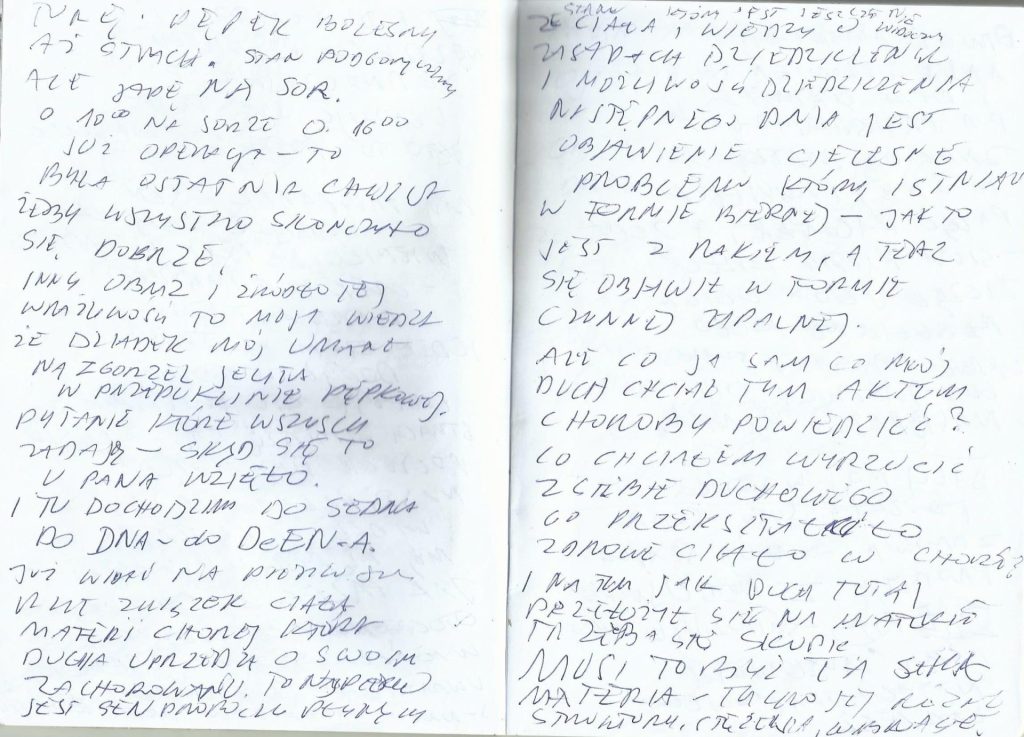 TURĘ. PĘPEK BOLESNY
AŻ STRACH. STAN PODGORĄCZKOWY
ALE JADĘ NA SOR.
O 10 00 NA SORZE O. 16 00
JUŻ OPERACJA – TO
BYŁA OSTATNIA CHWILA
ŻEBY WSZYSTKO SKOŃCZYŁO
SIĘ DOBRZE,
INNY OBRAZ I ŹRÓDŁO TEJ
WRAŻLIWOŚCI TO MOJA WIEDZA
ŻE DZIADEK MÓJ UMARŁ
NA ZGORZEL JELITA
W PRZEPUKLINIE PĘPKOWEJ.
PYTANIE KTÓRE WSZYSCY
ZADAJĄ – SKĄD SIĘ TO
U PANA WZIĘŁO.
I TU DOCHODZIMY DO SEDNA
DO DNA – do DeEN-A.
JUŻ WIDAĆ NA
ZWIĄZEK CIAŁA
MATERII CHOREJ KTÓRA
DUCHA UPRZEDZA O SWOIM
ZACHOROWANIU. TO
JEST SEN PROROCZY PŁYNĄCY
STANU KTÓRY JEST JESZCZE NIE
ZE CIAŁA I WIEDZY O
ZASADACH DZIEDZICZENIA
I MOŻLIWOŚCI DZIEDZICZENIA
NASTĘPNEGO DNIA JEST
OBJAWIENIE CIELESNE
PROBLEMU KTÓRY ISTNIAŁ
W FORMIE BIERNEJ – JAK TO
JEST Z RAKIEM, A TERAZ
SIĘ OBJAWIŁ W FORMIE
CZYNNEJ ZAPALNEJ.
ALE CO JA SAM CO MÓJ
DUCH CHCIAŁ TYM AKTEM
CHOROBY POWIEDZIEĆ?
CO CHCIAŁEM WYRZUCIĆ
Z SIEBIE DUCHOWEGO
CO PRZEKSZTAŁCIŁO
ZDROWE CIAŁO W CHORE?
I NA TYM JAK DUCH TUTAJ
PRZEŁOŻYŁ SIĘ NA MATERIĘ
TRZEBA SIĘ SKUPIĆ
MUSI TO BYĆ TA SAMA
MATERIA – TYLKO JEJ RÓŻNE
STRUKTURY, STĘŻENIA,